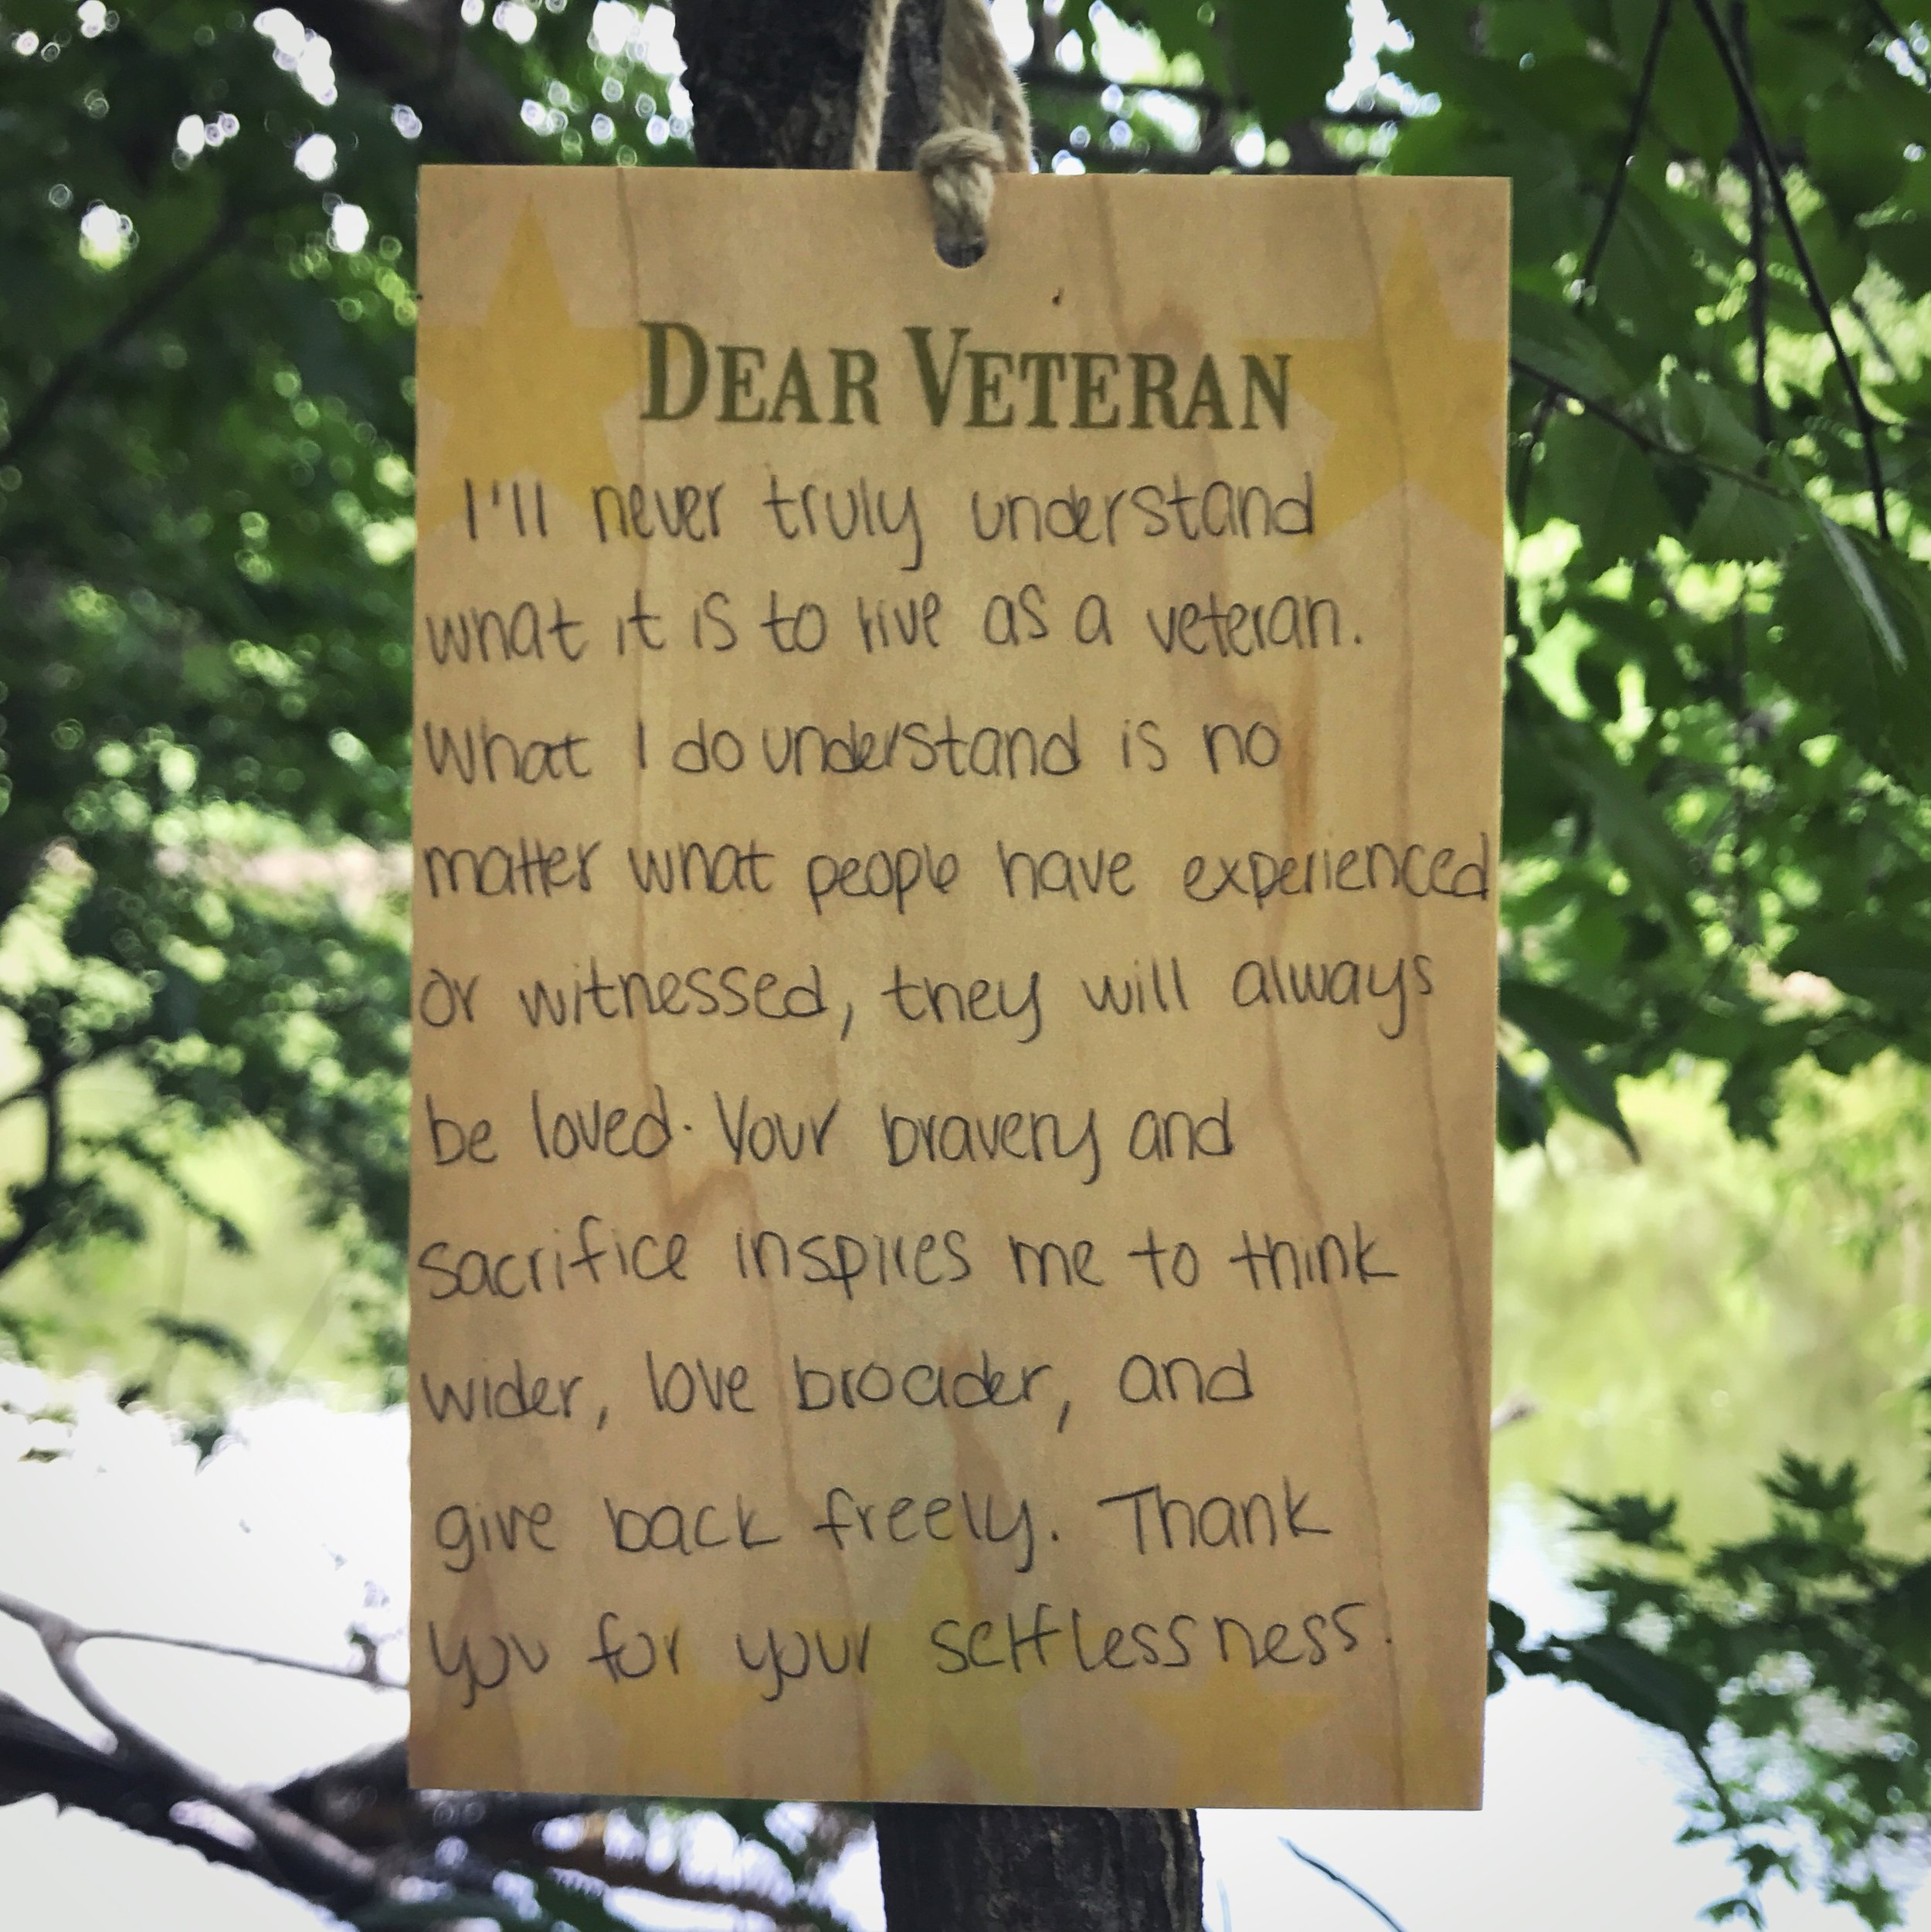 DEAR VETERAN
I'll never truly understand
what it is to live as a veteran.
What I do understand is no
matter what people have experienced
or witnessed, they will always
be loved. Your bravery and
sacrifice inspires me to think
wider, love broader, and
give back freely. Thank
you for your selflessness.